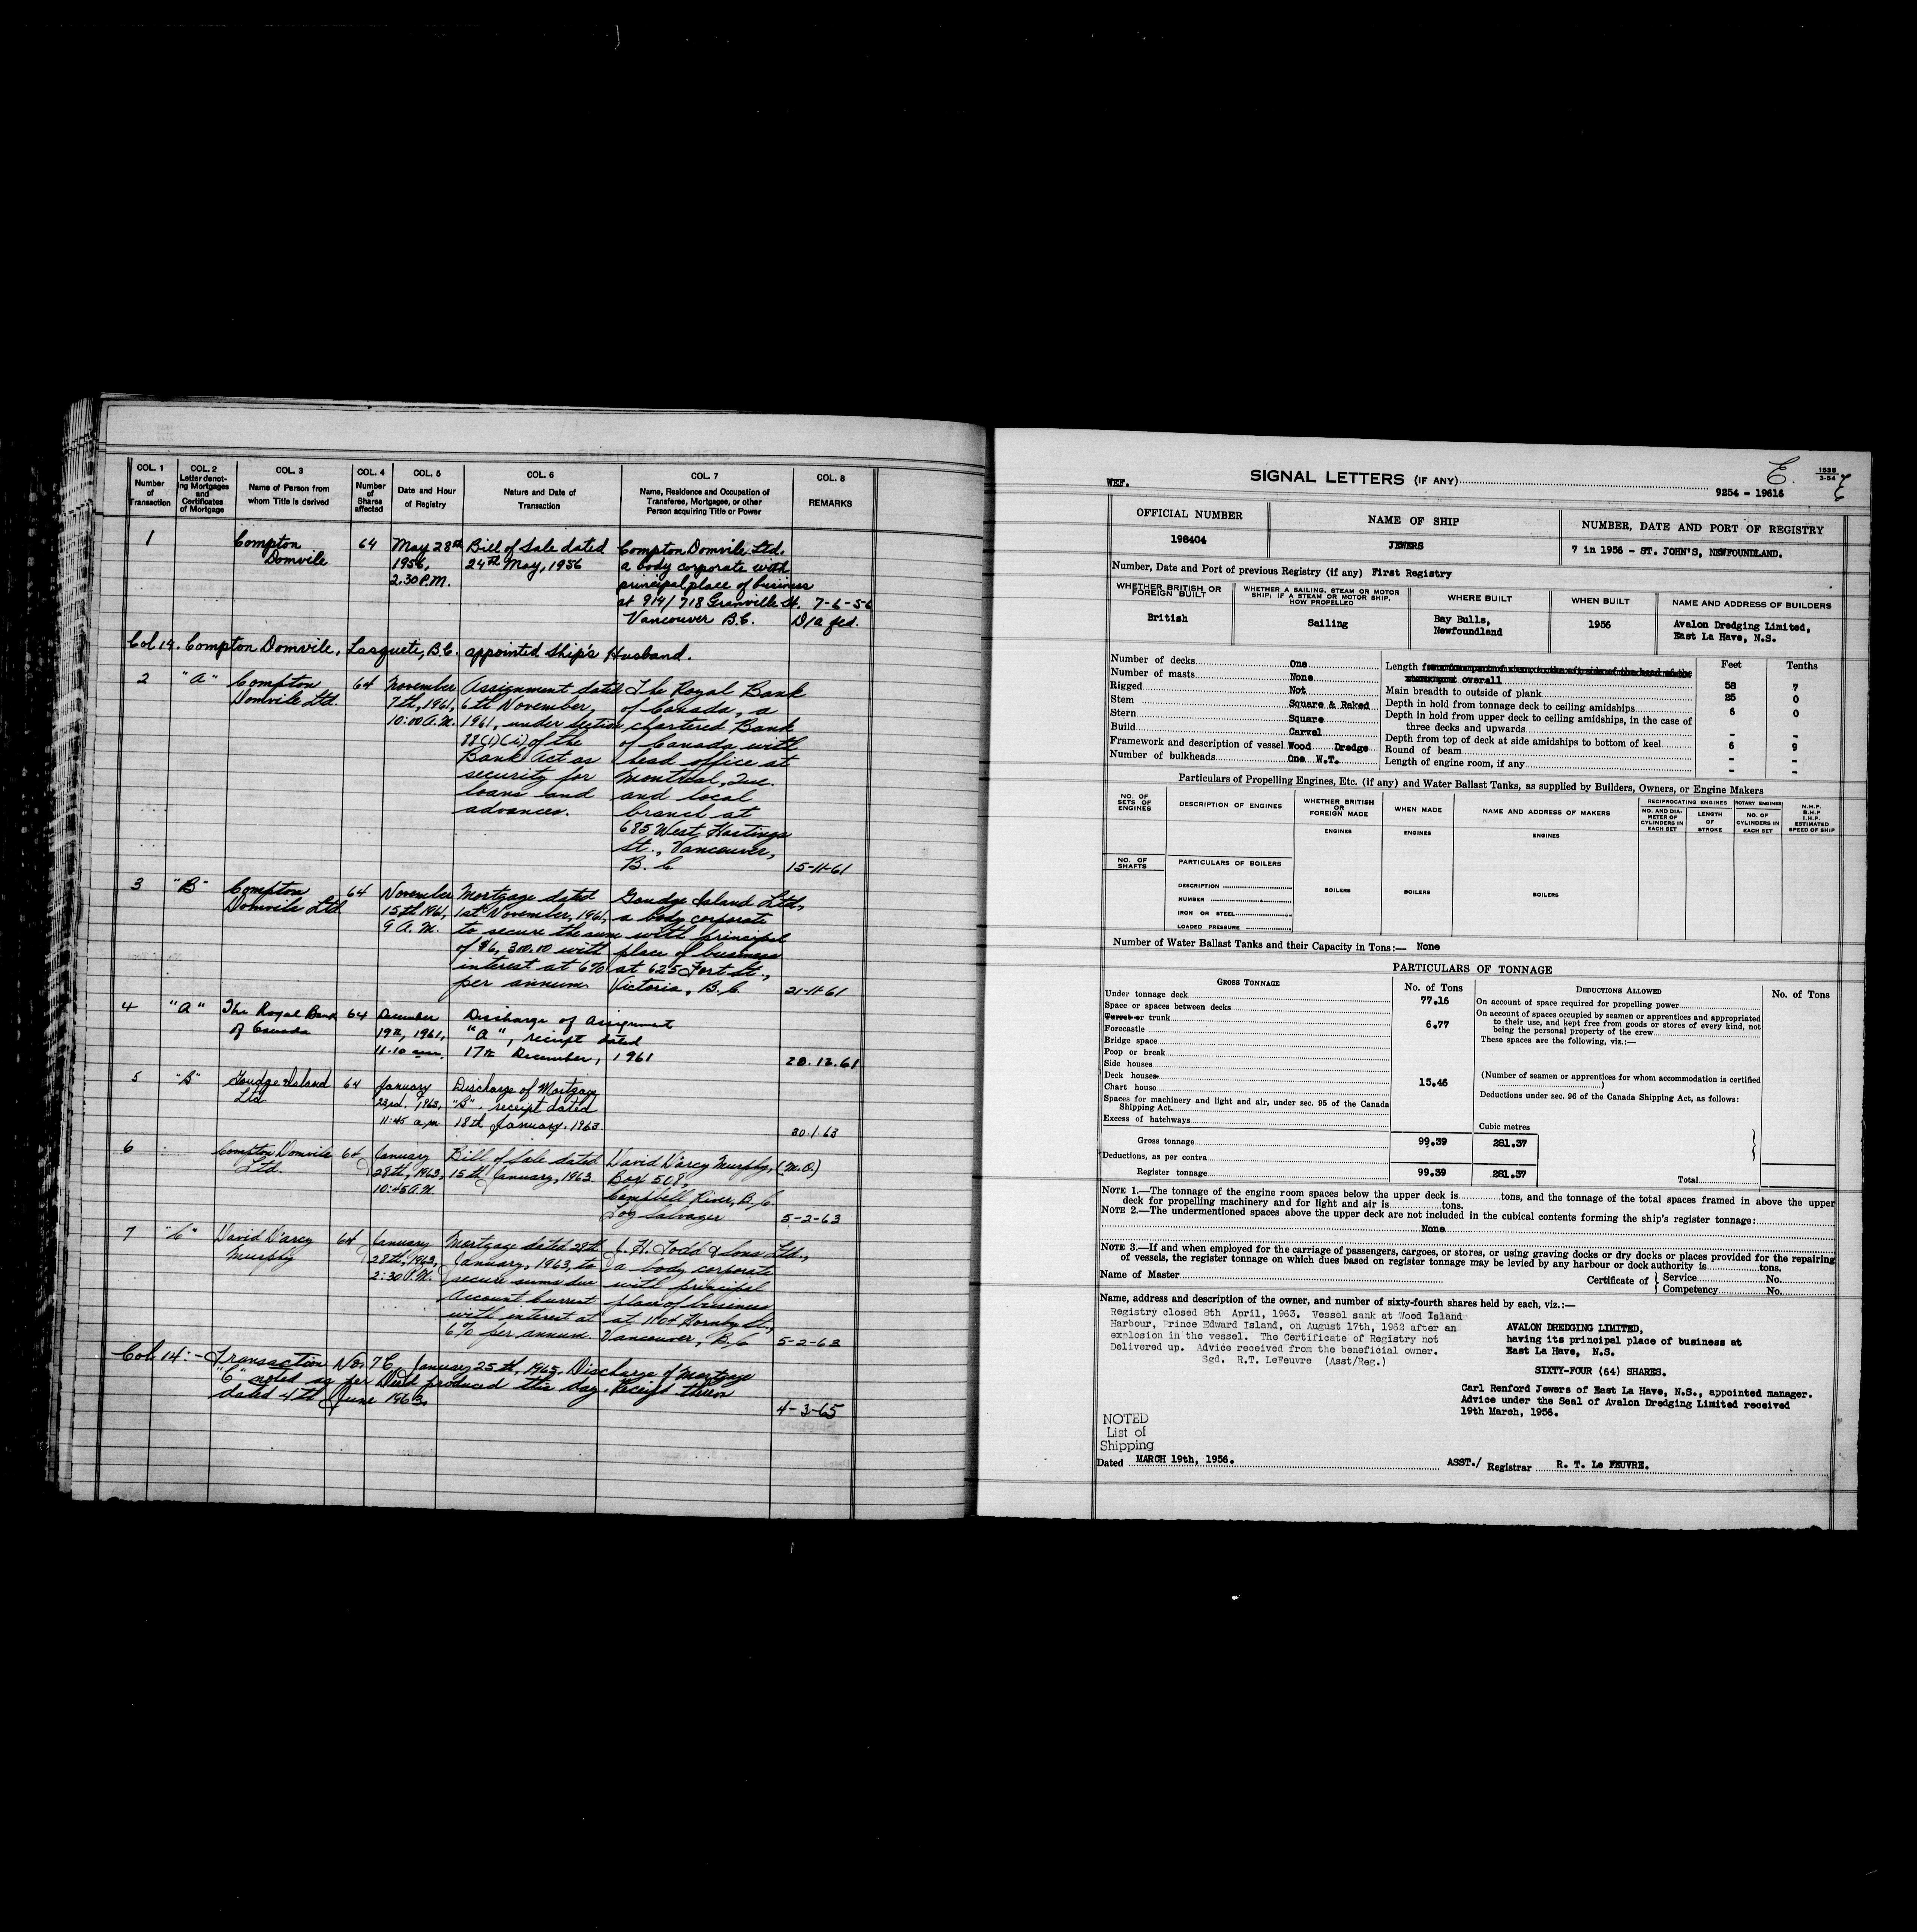 COL. 1 Number of Transaction
COL. 2 Letter denoting Mortgages and Certificates of Mortgage
COL. 3 Name of Person from whom Title is derived
COL. 4 Number of Shares affected
COL. 5 Date and Hour of Registry
COL. 6 Nature and Date of Transaction
COL. 7 Name, Residence and Occupation of Transferee, Mortgagee, or other Person acquiring Title or Power
COL. 8 REMARKS
1 Compton 64 May 28th Bill of Sale dated Compton Domvile Ltd.
Domvile 1956, 24th May, 1956 a body corporate with
2.30 P.M. principal place of business
at 914/718 Granville St. 7-6-56
Vancouver B.C. D/a fed.
Col 14. Compton Domvile, Lasqueti, B.C. appointed Ship's Husband.
2 "A" Compton 64 November Assignment dated The Royal Bank
Domvile Ltd. 7th, 1961, 6th November, of Canada, a
10:00 A.M. 1961, under section chartered Bank
88(1)(i) of the of Canada with
Bank Act as head office at
security for Montreal, Que.
loans and and local
advances. branch at
685 West Hastings
St., Vancouver,
B.C 15-11-61
3 "B" Compton 64 November Mortgage dated Goudge Island Ltd,
Domvile Ltd. 15th 1961, 1st November, 1961, a body corporate
9 A.M. to secure the sum with principal
of $6,300.00 with place of business
interest at 6% at 625 Fort St.,
per annum. Victoria, B.C. 21-11-61
4 "A" The Royal Bank 64 December Discharge of Assignment
of Canada 19th, 1961, "A", receipt dated
11.10 am, 17th December, 1961 28.12.61
5 "B" Goudge Island 64 January Discharge of Mortgage
Ltd 23rd, 1963, "B", receipt dated
11:45 a.m 18th January, 1963. 30.1.63
6 Compton Domvile 64 January Bill of Sale dated David D'arcy Murphy, (M.O.)
Ltd. 28th, 1963, 15th January, 1963. Box 508,
10:45 A.M. Campbell River, B.C.
Log Salvager 5-2-63
7 "C" David D'arcy 64 January Mortgage dated 28th J. H. Todd & Sons Ltd.,
Murphy 28th, 1963, January, 1963, to a body corporate
2:30 P.M. secure sums due with principal
Account Current place of business
with interest at at 1104 Hornby St.,
6% per annum. Vancouver, B.C 5-2-63
Col 14:- Transaction No. 7 C, January 25th, 1965, Discharge of Mortgage
"C" noted as per Deed produced this day. Receipt thereon
dated 4th June 1963. 4-3-65
WEF.
SIGNAL LETTERS (IF ANY)
E.
1535
3-54
9254 - 19616
OFFICIAL NUMBER NAME OF SHIP NUMBER, DATE AND PORT OF REGISTRY
198404 JEWERS 7 in 1956 - ST. JOHN'S, NEWFOUNDLAND.
Number, Date and Port of previous Registry (if any) First Registry
WHETHER BRITISH OR FOREIGN BUILT
WHETHER A SAILING, STEAM OR MOTOR SHIP; IF A STEAM OR MOTOR SHIP, HOW PROPELLED
WHERE BUILT
WHEN BUILT
NAME AND ADDRESS OF BUILDERS
British Sailing Bay Bulls, 1956 Avalon Dredging Limited,
Newfoundland East La Have, N.S.
Number of decks One
Number of masts None
Rigged Not
Stem Square & Raked
Stern Square
Build Carvel
Framework and description of vessel Wood Dredge
Number of bulkheads One W.T.
Feet Tenths
Length overall 58 7
Main breadth to outside of plank 25 0
Depth in hold from tonnage deck to ceiling amidships 6 0
Depth in hold from upper deck to ceiling amidships, in the case of
three decks and upwards - -
Depth from top of deck at side amidships to bottom of keel 6 9
Round of beam - -
Length of engine room, if any - -
Particulars of Propelling Engines, Etc. (if any) and Water Ballast Tanks, as supplied by Builders, Owners, or Engine Makers
NO. OF SETS OF ENGINES
DESCRIPTION OF ENGINES
WHETHER BRITISH OR FOREIGN MADE
WHEN MADE
NAME AND ADDRESS OF MAKERS
RECIPROCATING ENGINES
NO. AND DIAMETER OF CYLINDERS IN EACH SET
LENGTH OF STROKE
ROTARY ENGINES
NO. OF CYLINDERS IN EACH SET
N.H.P.
B.H.P
I.H.P.
ESTIMATED SPEED OF SHIP
ENGINES ENGINES ENGINES
NO. OF SHAFTS
PARTICULARS OF BOILERS
DESCRIPTION
NUMBER
IRON OR STEEL
LOADED PRESSURE
BOILERS BOILERS BOILERS
Number of Water Ballast Tanks and their Capacity in Tons:— None
PARTICULARS OF TONNAGE
GROSS TONNAGE No. of Tons DEDUCTIONS ALLOWED No. of Tons
Under tonnage deck 77.16
Space or spaces between decks
Turret or trunk 6.77
Forecastle
Bridge space
Poop or break
Side houses
Deck houses 15.46
Chart house
Spaces for machinery and light and air, under sec. 95 of the Canada
Shipping Act
Excess of hatchways
Cubic metres
Gross tonnage 99.39 281.37
Deductions, as per contra
Register tonnage 99.39 281.37
On account of space required for propelling power
On account of spaces occupied by seamen or apprentices and appropriated
to their use, and kept free from goods or stores of every kind, not
being the personal property of the crew
These spaces are the following, viz.:—
(Number of seamen or apprentices for whom accommodation is certified
)
Deductions under sec. 96 of the Canada Shipping Act, as follows:
Total
NOTE 1.—The tonnage of the engine room spaces below the upper deck is tons, and the tonnage of the total spaces framed in above the upper
deck for propelling machinery and for light and air is tons.
NOTE 2.—The undermentioned spaces above the upper deck are not included in the cubical contents forming the ship's register tonnage:
None
NOTE 3.—If and when employed for the carriage of passengers, cargoes, or stores, or using graving docks or dry docks or places provided for the repairing
of vessels, the register tonnage on which dues based on register tonnage may be levied by any harbour or dock authority is tons.
Name of Master Certificate of Service No.
Competency No.
Name, address and description of the owner, and number of sixty-fourth shares held by each, viz.:—
Registry closed 8th April, 1963. Vessel sank at Wood Island
Harbour, Prince Edward Island, on August 17th, 1962 after an
explosion in the vessel. The Certificate of Registry not
Delivered up. Advice received from the beneficial owner.
Sgd. R.T. LeFeuvre (Asst/Reg.)
AVALON DREDGING LIMITED,
having its principal place of business at
East La Have, N.S.
SIXTY-FOUR (64) SHARES.
Carl Renford Jewers of East La Have, N.S., appointed manager.
Advice under the Seal of Avalon Dredging Limited received
19th March, 1956.
NOTED
List of
Shipping
Dated MARCH 19th, 1956. ASST./ Registrar R. T. Le FEUVRE.